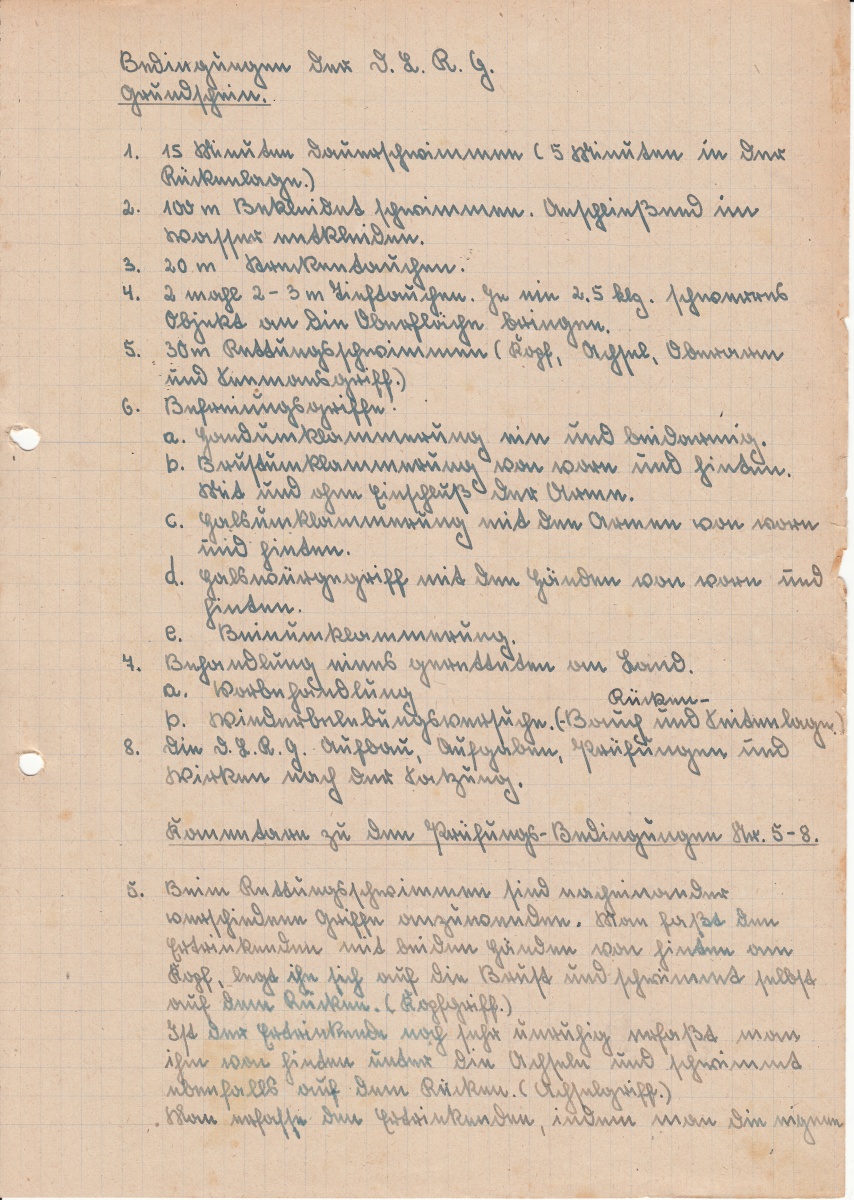 Bedingungen der D. L. R. G.
Grundschein.
1. 15 Minuten Dauerschwimmen (5 Minuten in der
Rückenlage.)
2. 100 m Bekleidet schwimmen. Anschließend im
Wasser entkleiden.
3. 20 m Streckentauchen.
4. 2 mahl 2-3 m Tieftauchen. Je ein 2.5 klg. schwerres
Objekt an die Oberfläche bringen.
5. 30m Rettungsschwimmen (Kopf, Achsel, Oberarm
und Seemansgriff.)
6. Befreiungsgriffe.
a. Handumklammerung ein und beidarmig.
b. Brustumklammerung von vorn und hinten.
Mit und ohne Einschluß der Arme.
c. Halsumklammerung mit den Armen von vorn
und hinten.
d. Halswürgegriff mit den Händen von vorn und
hinten.
e. Beinumklammerung.
7. Behandlung eines geretteten an Land.
a. Vorbehandlung
Rücken-
b. Wiederbelebungsversuche. (-Bauch und Seitenlage.)
8. Die D. L. R. G. Aufbau, Aufgaben, Prüfungen und
Wirken nach der Satzung.
Komentare zu den Prüfungs-Bedingungen Nr. 5-8.
5. Beim Rettungsschwimmen sind nacheinander
verschiedene Griffe anzuwenden. Man faßt den
Ertrinkenden mit beiden Händen von hinten am
Kopf, legt ihn sich auf die Brust und schwimmt selbst
auf dem Rücken. (Kopfgriff.)
Ist der Ertrinkende noch sehr unruhig erfaßt man
ihn von hinten unter die Achseln und schwimmt
ebenfalls auf dem Rücken. (Achselgriff.)
Man erfasse den Ertrinkenden, indem man die eigene